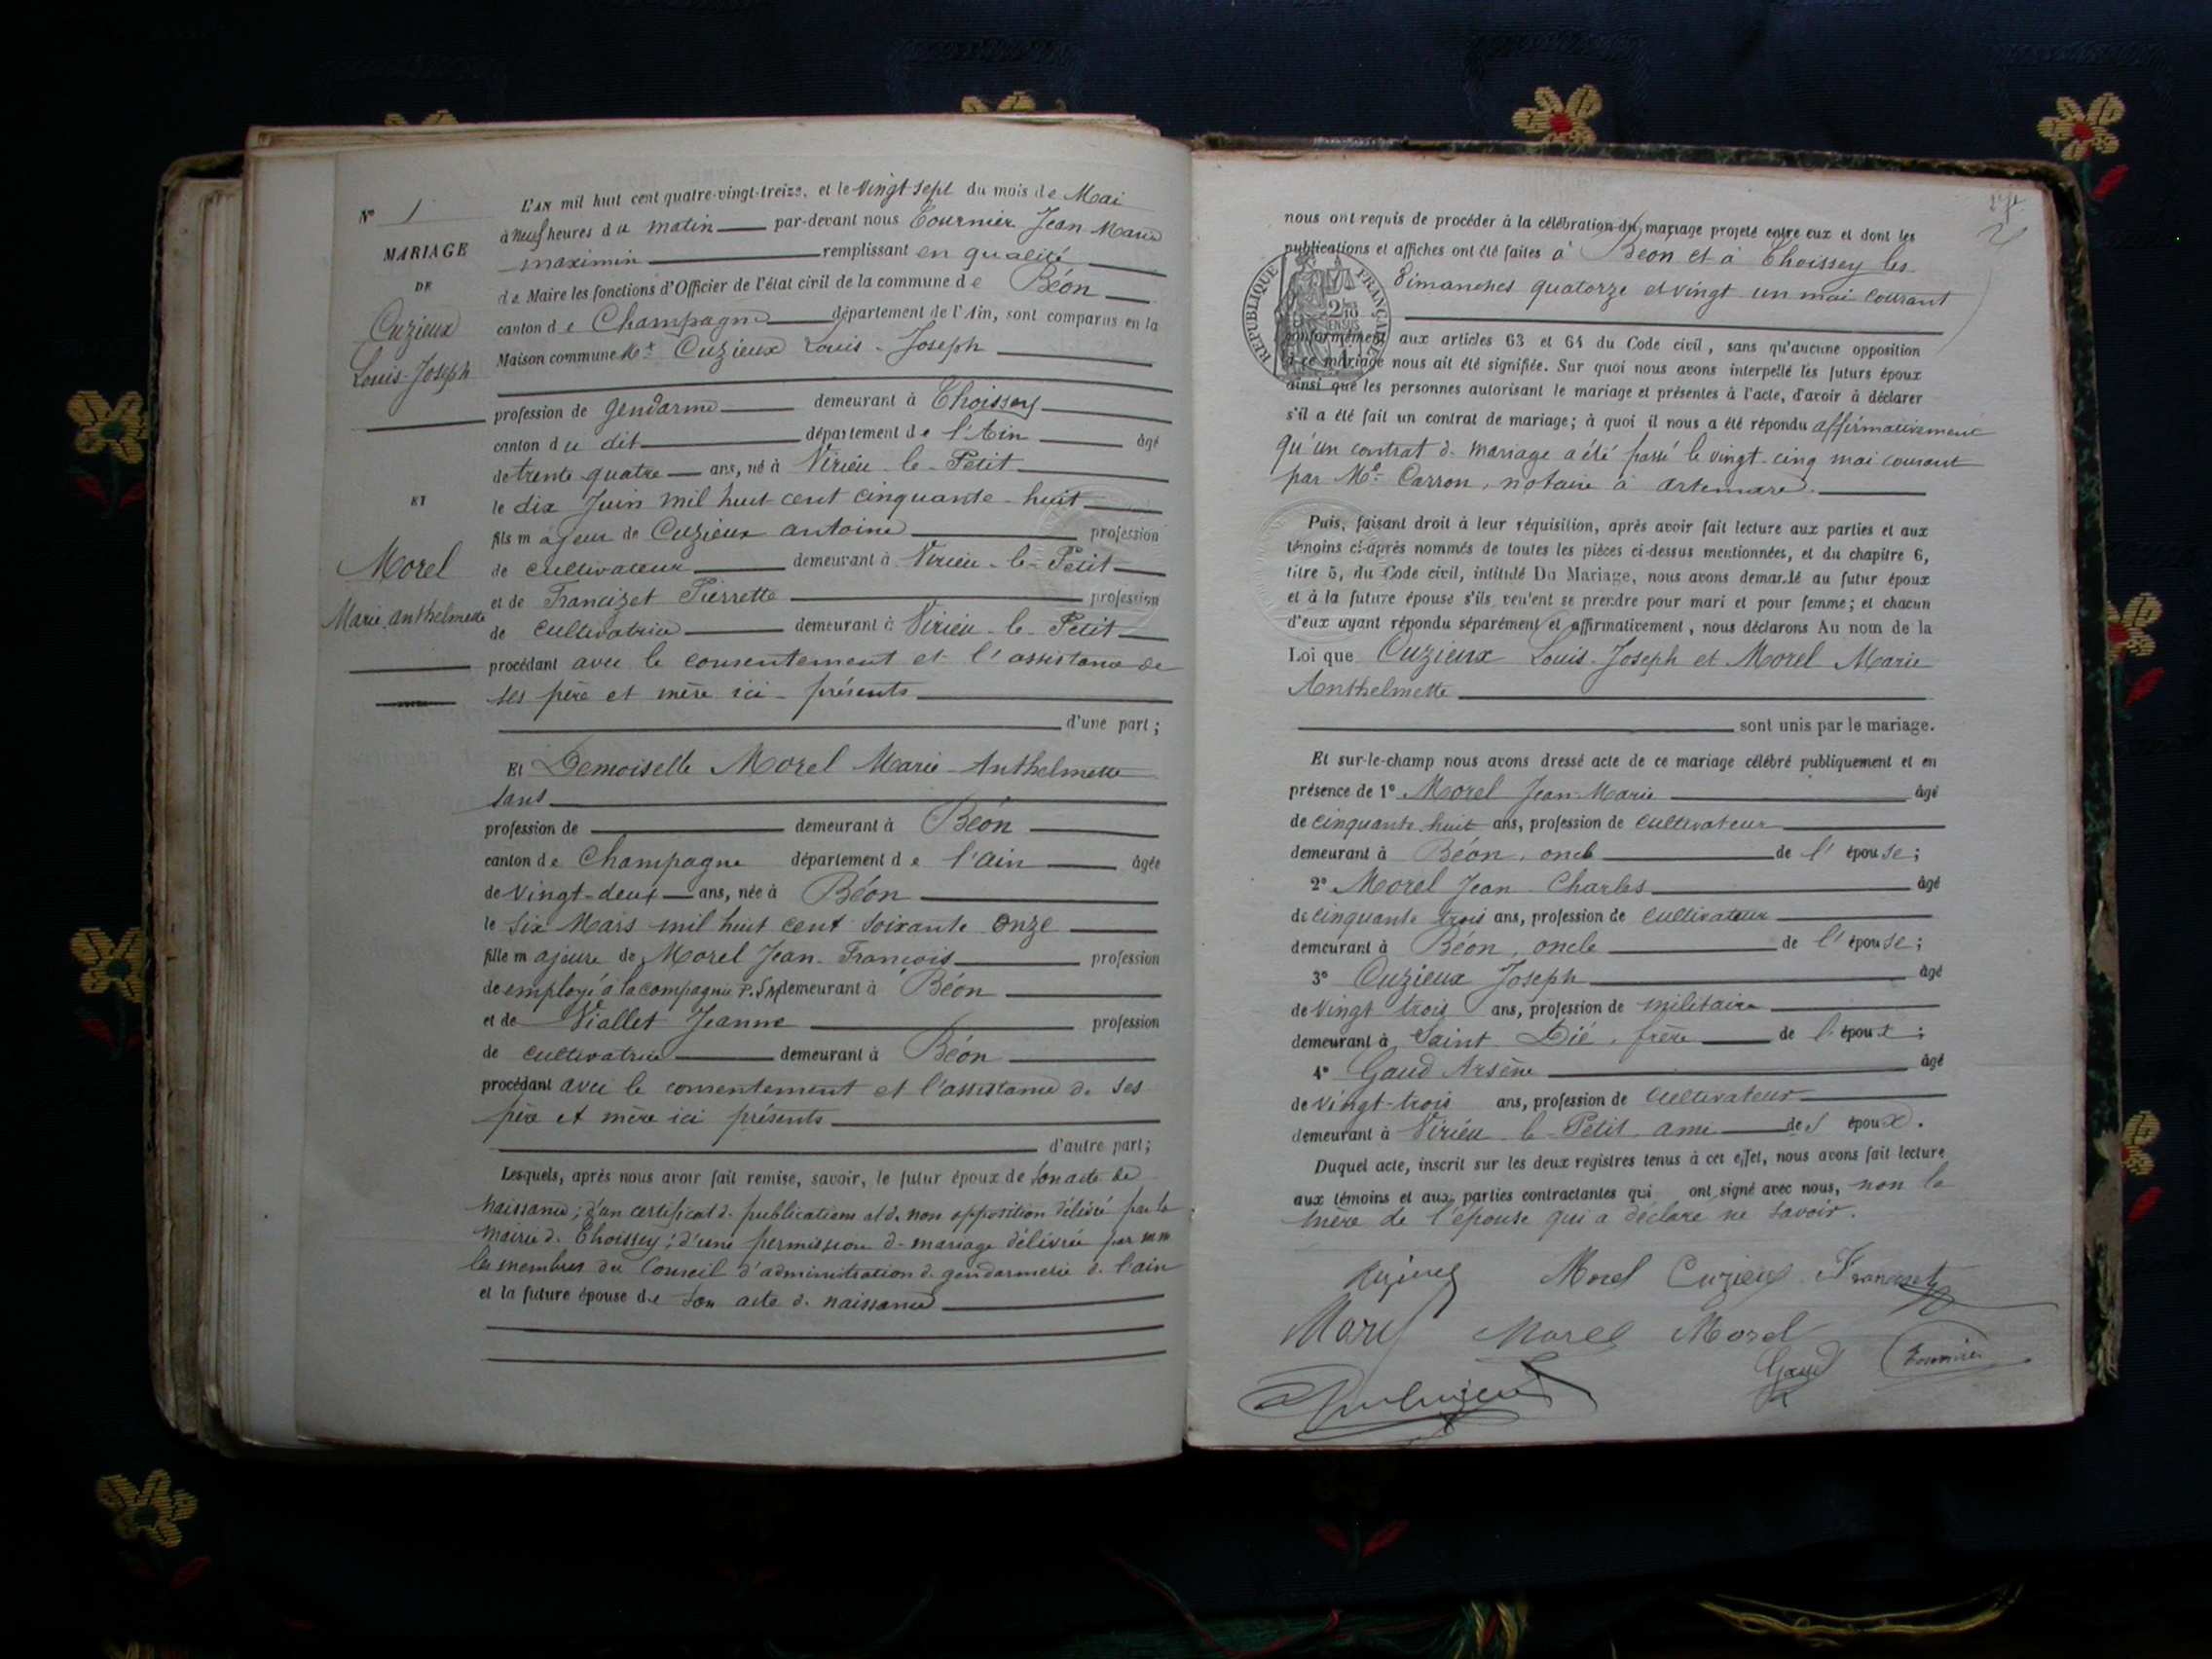 N° 1
MARIAGE
DE
Cuzieux
Louis-Joseph
ET
Morel
Marie Anthelmette
L'AN mil huit cent quatre-vingt-treize, et le vingt sept du mois de Mai
à neuf heures du matin par-devant nous Tournier Jean Marie
maximin remplissant en qualité
de Maire les fonctions d'Officier de l'état civil de la commune de Béon
canton de Champagne département de l'Ain, sont comparus en la
Maison commune Mr Cuzieux Louis-Joseph
profession de gendarme demeurant à Thoissey
canton du dit département de l'Ain âgé
de trente quatre ans, né à Virieu-le-Petit
le dix Juin mil huit cent cinquante-huit
fils majeur de Cuzieux antoine profession
de cultivateur demeurant à Virieu-le-Petit
et de Francizet Pierrette profession
de cultivatrice demeurant à Virieu-le-Petit
procédant avec le consentement et l'assistance de
ses père et mère ici-présents
d'une part;
Et Demoiselle Morel Marie-Anthelmette
sans
profession de demeurant à Béon
canton de Champagne département de l'ain âgée
de vingt-deux ans, née à Béon
le six Mars mil huit cent soixante onze
fille majeure de Morel Jean-François profession
de employé à la compagnie P.L.M. demeurant à Béon
et de Viallet Jeanne profession
de cultivatrice demeurant à Béon
procédant avec le consentement et l'assistance de ses
père et mère ici présents
d'autre part;
Lesquels, après nous avoir fait remise, savoir, le futur époux de son acte de
naissance; d'un certificat de publications et de non opposition délivré par la
mairie de Thoissey; d'une permission de mariage délivrée par mm
les membres du Conseil d'administration de gendarmerie de l'ain
et la future épouse de son acte de naissance
nous ont requis de procéder à la célébration du mariage projeté entre eux et dont les
publications et affiches ont été faites à Béon et à Thoissey les
dimanches quatorze et vingt un mai courant
RÉPUBLIQUE FRANÇAISE
conformément aux articles 63 et 64 du Code civil, sans qu'aucune opposition
à ce mariage nous ait été signifiée. Sur quoi nous avons interpellé les futurs époux
ainsi que les personnes autorisant le mariage et présentes à l'acte, d'avoir à déclarer
s'il a été fait un contrat de mariage; à quoi il nous a été répondu affirmativement
qu'un contrat de mariage a été passé le vingt-cinq mai courant
par Me Carron, notaire à artemare.
Puis, faisant droit à leur réquisition, après avoir fait lecture aux parties et aux
témoins ci-après nommés de toutes les pièces ci-dessus mentionnées, et du chapitre 6,
titre 5, du Code civil, intitulé Du Mariage, nous avons demandé au futur époux
et à la future épouse s'ils veulent se prendre pour mari et pour femme; et chacun
d'eux ayant répondu séparément et affirmativement, nous déclarons Au nom de la
Loi que Cuzieux Louis-Joseph et Morel Marie
Anthelmette
sont unis par le mariage.
Et sur-le-champ nous avons dressé acte de ce mariage célébré publiquement et en
présence de 1° Morel Jean-Marie âgé
de cinquante huit ans, profession de cultivateur
demeurant à Béon, oncle de l'épouse;
2° Morel Jean-Charles âgé
de cinquante trois ans, profession de cultivateur
demeurant à Béon, oncle de l'épouse;
3° Cuzieux Joseph âgé
de vingt trois ans, profession de militaire
demeurant à Saint Dié, frère de l'époux;
4° Gaud Arsène âgé
de vingt-trois ans, profession de cultivateur
demeurant à Virieu-le-Petit ami des époux.
Duquel acte, inscrit sur les deux registres tenus à cet effet, nous avons fait lecture
aux témoins et aux parties contractantes qui ont signé avec nous, non la
mère de l'épouse qui a déclaré ne savoir.
Morel Cuzieux Francizet
Morel Morel Morel
Gaud Tournier